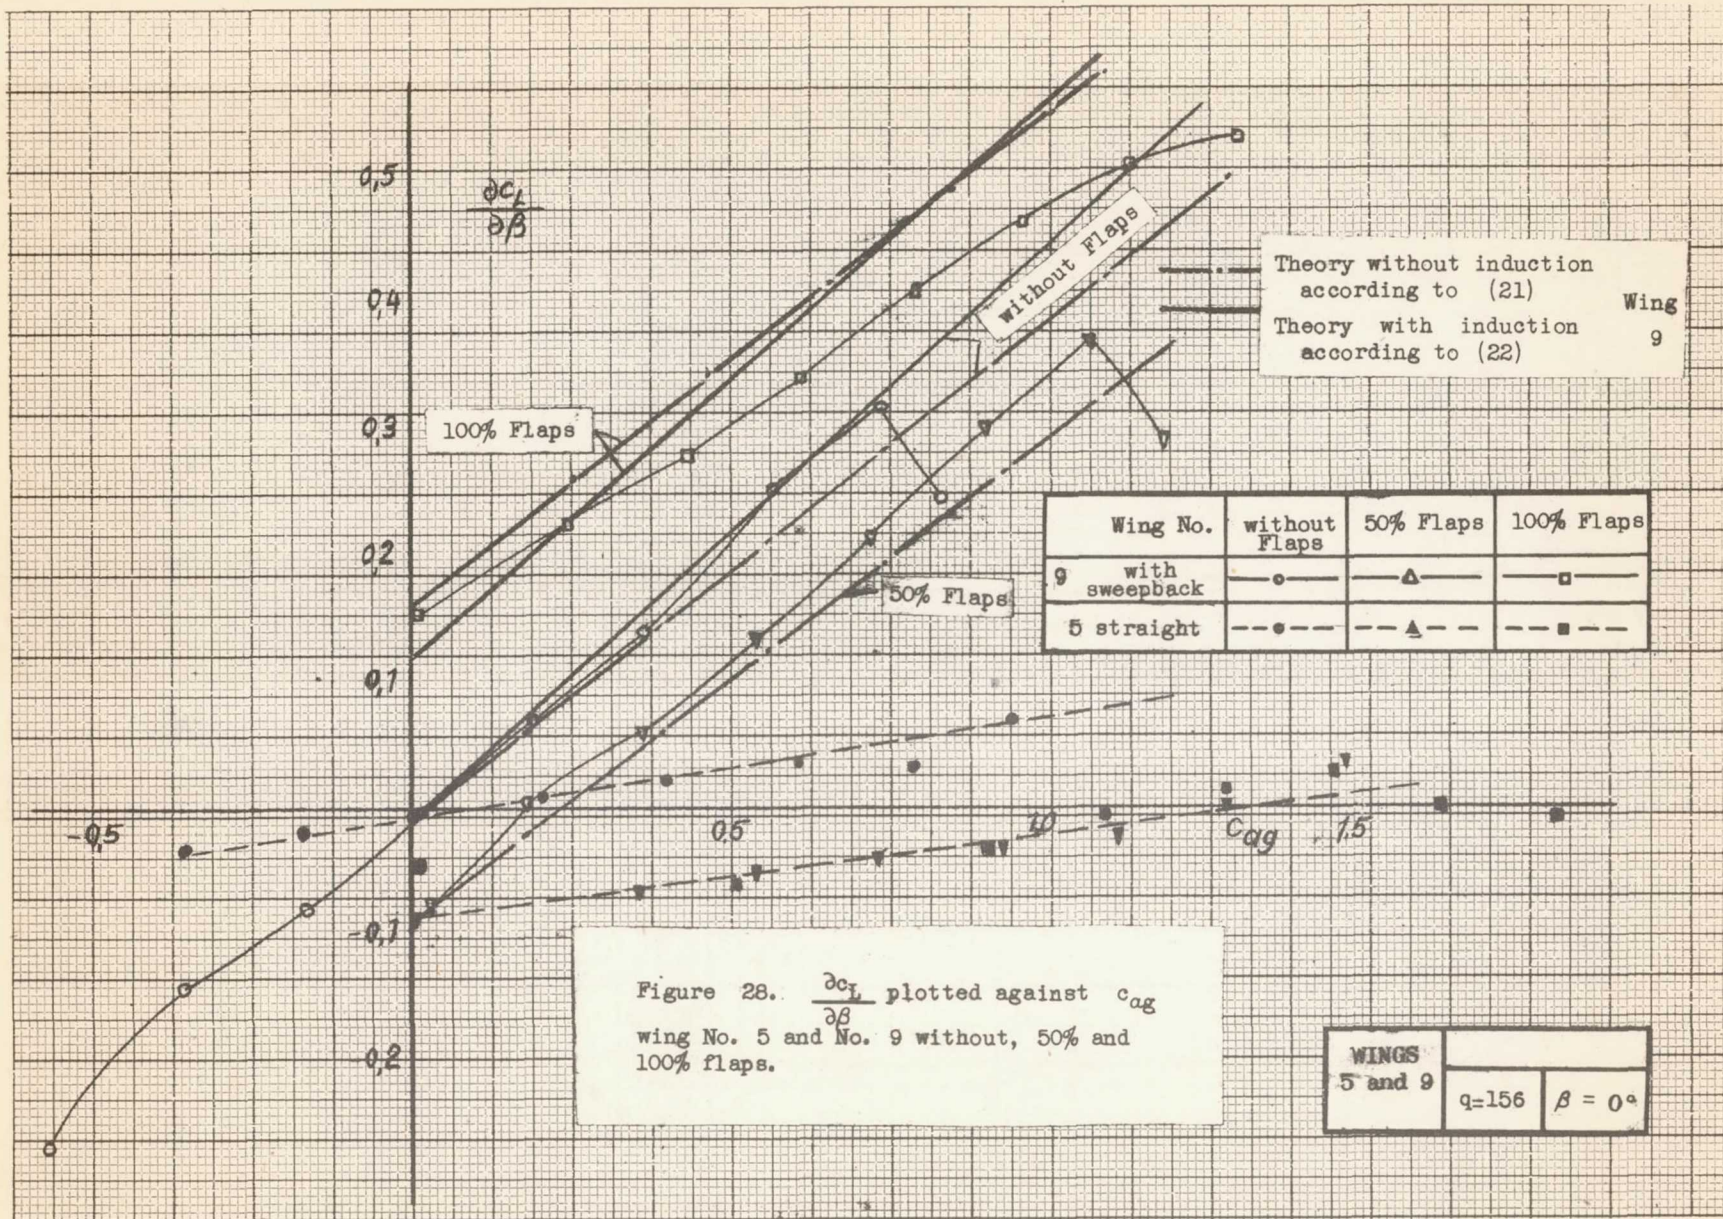 0,5
∂c_L
∂β
0,4
0,3
0,2
0,1
-0,5
0,5
1,0
c_ag
1,5
-0,1
-0,2
100% Flaps
without Flaps
50% Flaps
Theory without induction
according to (21)
Theory with induction
according to (22)
Wing
9
Wing No.
without
Flaps
50% Flaps
100% Flaps
9 with
sweepback
5 straight
Figure 28. ∂c_L/∂β plotted against c_ag
wing No. 5 and No. 9 without, 50% and
100% flaps.
WINGS
5 and 9
q=156
β = 0°